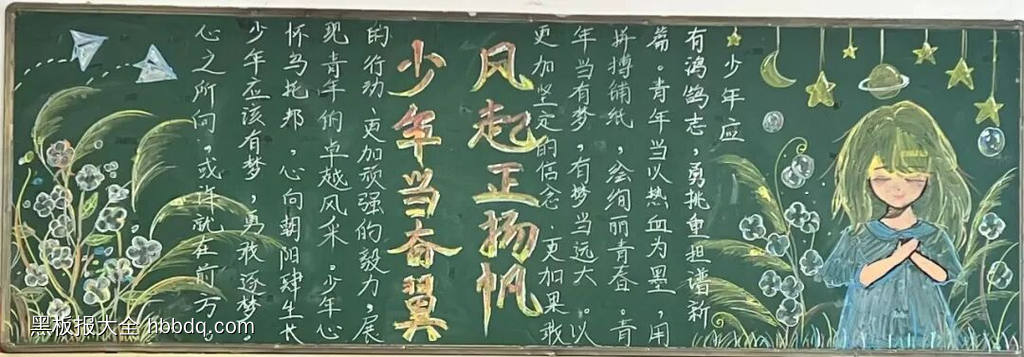 风起正扬帆
少年当奋翼
少年应
有鸿鹄志，勇挑重担谱新
篇。青年当以热血为墨，用
拼搏铺纸，绘绚丽青春。青
年当有梦，有梦当远大。以
更加坚定的信念、更加果敢
的行动、更加顽强的毅力，展
现青年的卓越风采。少年心
怀乌托邦，心向朝阳肆生长
少年应该有梦，勇敢逐梦。
心之所向，或许就在前方。
黑板报大全 hbbdq.com